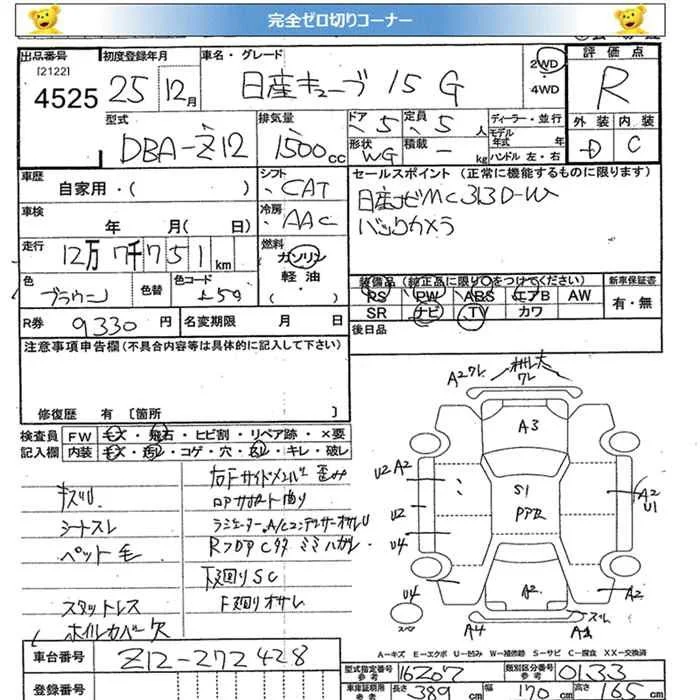 完全ゼロ切りコーナー
出品番号 初度登録年月 車名・グレード 評価点
[2122]
4525 25 12月 日産キューブ 15 G 2WD R
・
4WD
型式 排気量 ドア 定員 ディーラー・並行 外装 内装
DBA-Z12 1500cc 5 5人 モデル年式 年 D C
形状 積載 ハンドル 左・右
WG - kg
車歴 シフト セールスポイント (正常に機能するものに限ります)
自家用・( ) CAT 日産ナビMC313D-W
車検 冷房 バックカメラ
年 月( 日) AAC
走行 燃料
12万7千751km ガソリン
軽油
・( )
色 色替 色コード 装備品 (純正品に限り○をつけてください) 新車保証書
ブラウン RS PW ABS エアB AW 有・無
SR ナビ TV カワ
R券 9330円 名変期限 月 日 後日品
注意事項申告欄(不具合内容等は具体的に記入して下さい)
修復歴 有 [箇所 ]
検査員 FW キズ・飛石・ヒビ割・リペア跡・×要
記入欄 内装 キズ・汚レ・コゲ・穴・スレ・キレ・破レ
右Fサイドメンバー歪み
キズ汚
シートスレ
ペット毛
RフロアCタテ ミミハガレ
下廻りSC
F廻りオサレ
スタットレス
ホイルカバー欠
A2ワレ
A3
U2 A2
S1
A2
U1
U2
U4
U4
A2
A2
スペア
A4
スレ
A-キズ E-エクボ U-凹み W-補修跡 S-サビ C-腐食 XX-交換済
車台番号 Z12-272428
型式指定番号 16207 類別区分番号 0133
参考 参考
登録番号
車庫証明用 参考 長さ 389 cm 幅 170 cm 高さ 165 cm